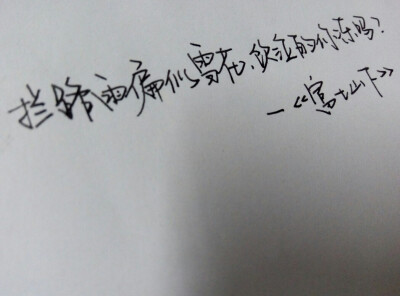 拦路雨偏似雪花,饮泣的你冻吗?
—《富士山下》